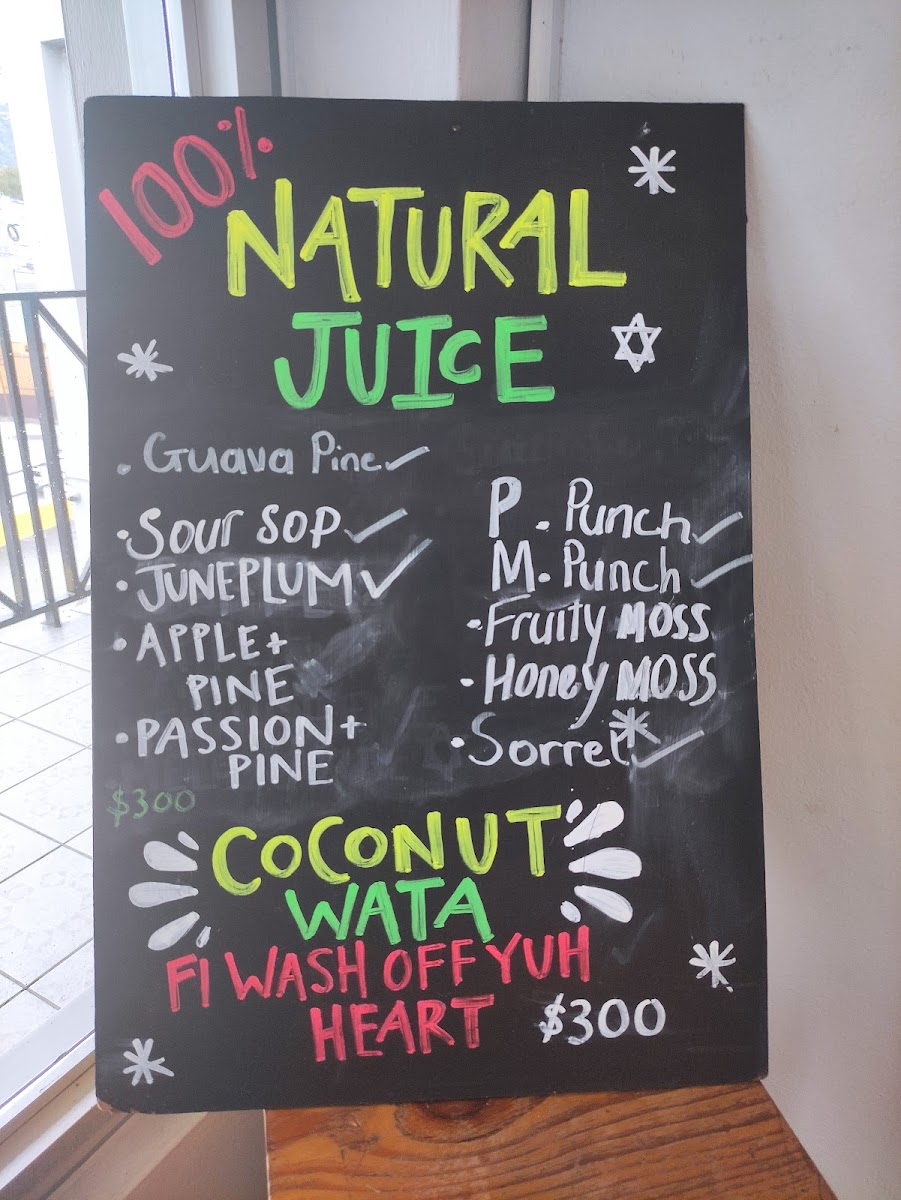 100%
NATURAL
JUICE
. Guava Pine ✓
• Sour SOP ✓
• JUNEPLUM ✓
• APPLE +
PINE
• PASSION +
PINE
$300
P. Punch ✓
M. Punch ✓
• Fruity MOSS
• Honey MOSS
• Sorrel ✓
COCONUT
WATA
FI WASH OFF YUH
HEART $300